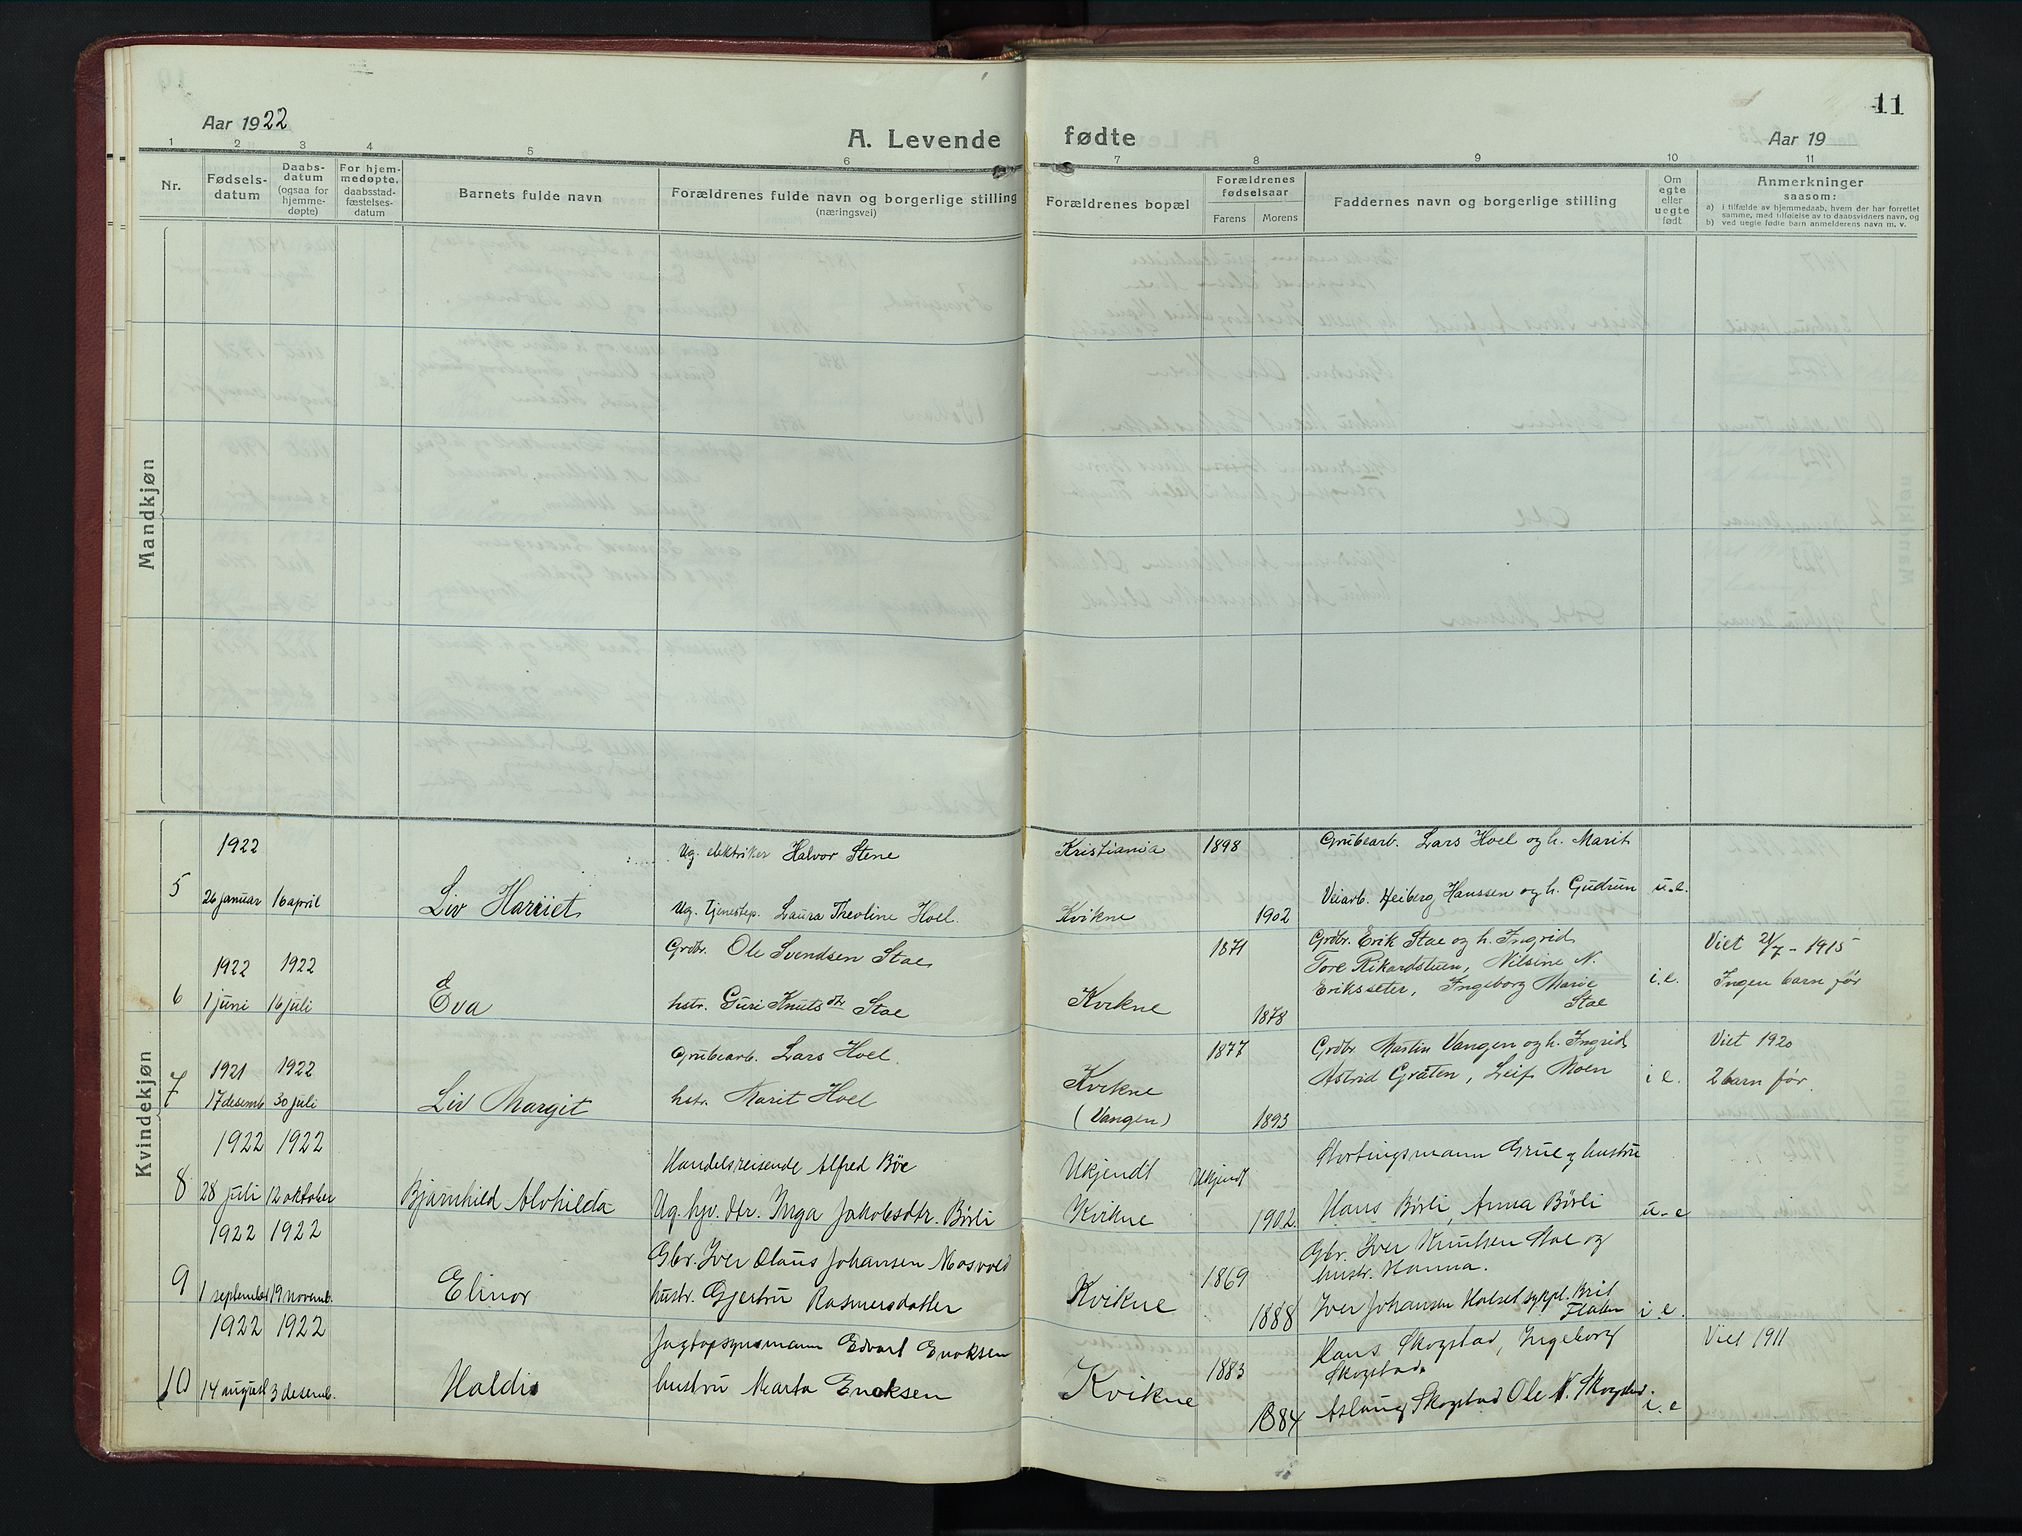 11
Aar 1922
A. Levende fødte
Aar 19
1 2 3 4 5 6 7 8 9 10 11
Nr.
Fødsels-
datum
Daabs-
datum
(ogsaa for
hjemme-
døpte)
For hjem-
medøpte,
daabsstad-
fæstelses-
datum
Barnets fulde navn
Forældrenes fulde navn og borgerlige stilling
(næringsvei)
Forældrenes bopæl
Forældrenes
fødselsaar
Farens
Morens
Faddernes navn og borgerlige stilling
Om
egte
eller
uegte
født
Anmerkninger
saasom:
a) i tilfælde av hjemmedaab, hvem der har forrettet
samme, med tilføielse av to daabsvidners navn, og
b) ved uegte fødte barn anmelderens navn m. v.
Mandkjøn
Kvindekjøn
1922 Ug. elektriker Halvor Stene Kristiania 1898 Grubearb. Lars Hoel og h. Marit
5 26 januar 16 april Liv Harriet Ug. tjenestep. Laura Theoline Hoel. Kvikne 1902 Veiarb. Heiberg Hanssen og h. Gudrun u.e.
1922 1922 Grdbr. Ole Svendsen Stae 1871 Grdbr. Erik Stae og h. Ingrid Viet 21/7 - 1915
Tore Rikardstuen, Nilsine N.
6 1 juni 16 juli Eva hstr. Guri Knutsdtr Stae Kvikne 1878 Eriksseter, Ingeborg Marie i.e. Ingen barn før
Stae
1921 1922 Grubearb. Lars Hoel. 1877 Grdbr Martin Vangen og h. Ingrid Viet 1920
7 17 desemb 30 juli Liv Margit hstr. Marit Hoel Kvikne Astrid Gråten, Leif Moen i e. 2 barn før.
(Vangen) 1893
1922 1922 Handelsreisende Alfred Bøe Ukjendt Ukjendt Stortingsmann Grue og hustru
8 28 juli 12 oktober Bjarnhild Alvhilda Ug. hjv. dtr. Inga Jakobsdtr. Børli Kvikne 1902 Hans Børli, Anna Børli u-e
1922 1922 Gbr. Iver Olaus Johansen Mosvold 1869 Gbr. Iver Knutsen Stae og
hustr. Hanna.
9 1 september 19 novemb. Elinor hustr. Gjertru Rasmusdatter Kvikne 1888 Iver Johansen Halset sypl. Brit i e.
Flaten
1922 1922 Jagtopsynsmann Edvart Enoksen 1883 Hans Skogstad, Ingeborg Viet 1911
Skogstad.
10 14 august 3 desemb. Haldis hustru Marta Enoksen Kvikne 1884 Aslaug Skogstad Ole N. Skogstad. i.e